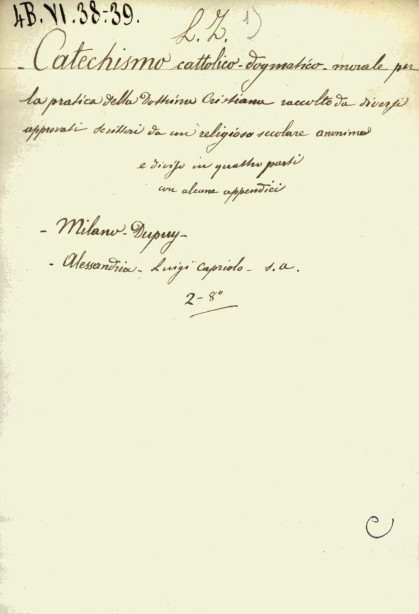 4B. VI. 38-39.
L. Z. 1)
- Catechismo cattolico-dogmatico-morale per
la pratica della Dottrina Cristiana raccolto da diversi
approvati scrittori da un religioso secolare anonimo
e diviso in quattro parti
con alcune appendici
- Milano - Dupuy -
- Alessandria - Luigi Capriolo - s. a.
2 - 8°
C